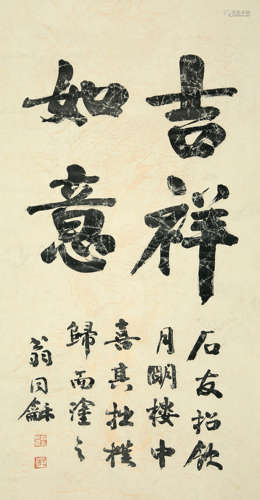 吉祥
如意
石友招飲
月明樓中
喜其拙樸
歸而塗之
翁同龢